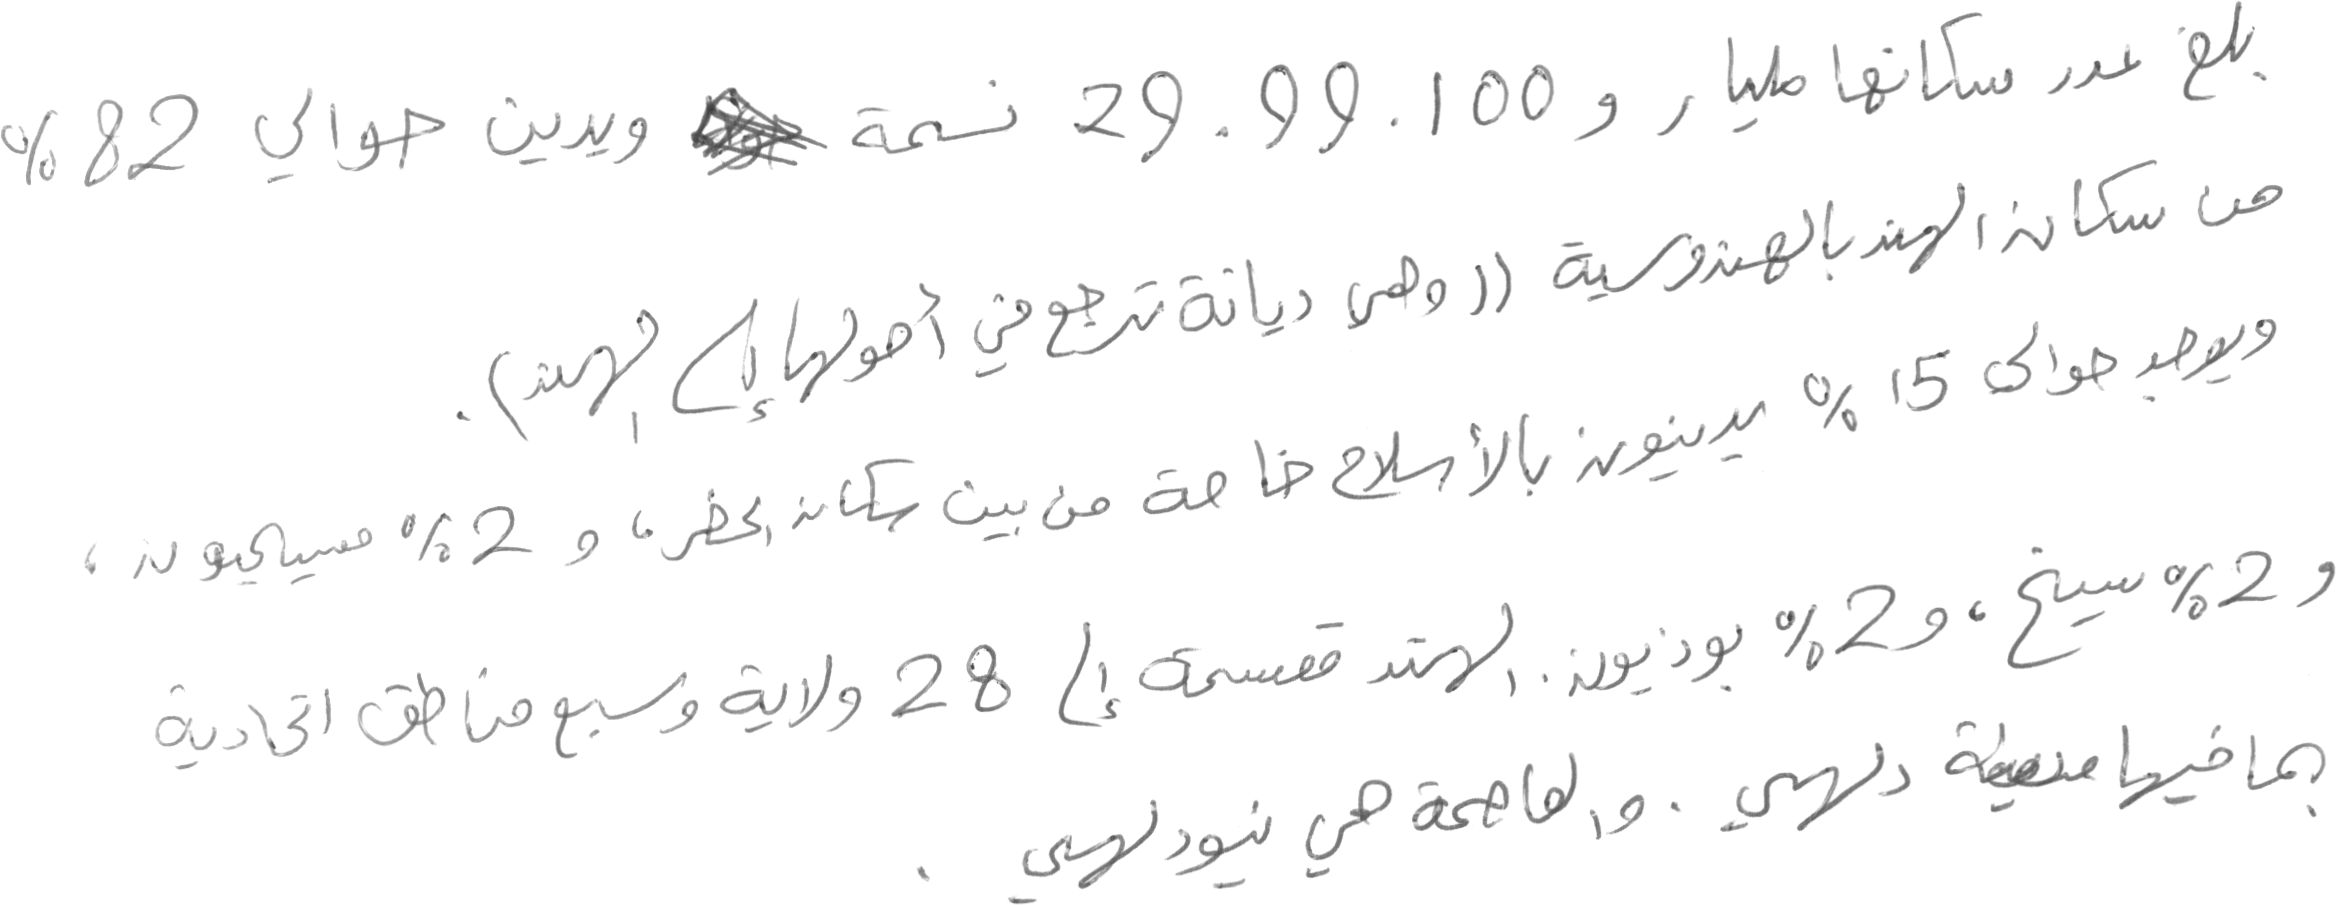 بلغ عدد سكانها مليار و 29.99.100 نسمة ويدين حوالي 82%
من سكان الهند بالهندوسية ((وهي ديانة ترجع في أصولها إلى الهند).
ويوجد حوالى 15% يدينون بالأسلام خاصة من بين سكان الحضر، و 2% مسيحيون،
و 2% سيخ، و 2% بوذيون. الهند مقسمة إلى 28 ولاية وسبع مناطق اتحادية
بما فيها مدينة دلهي. والعاصمة هي نيودلهي.